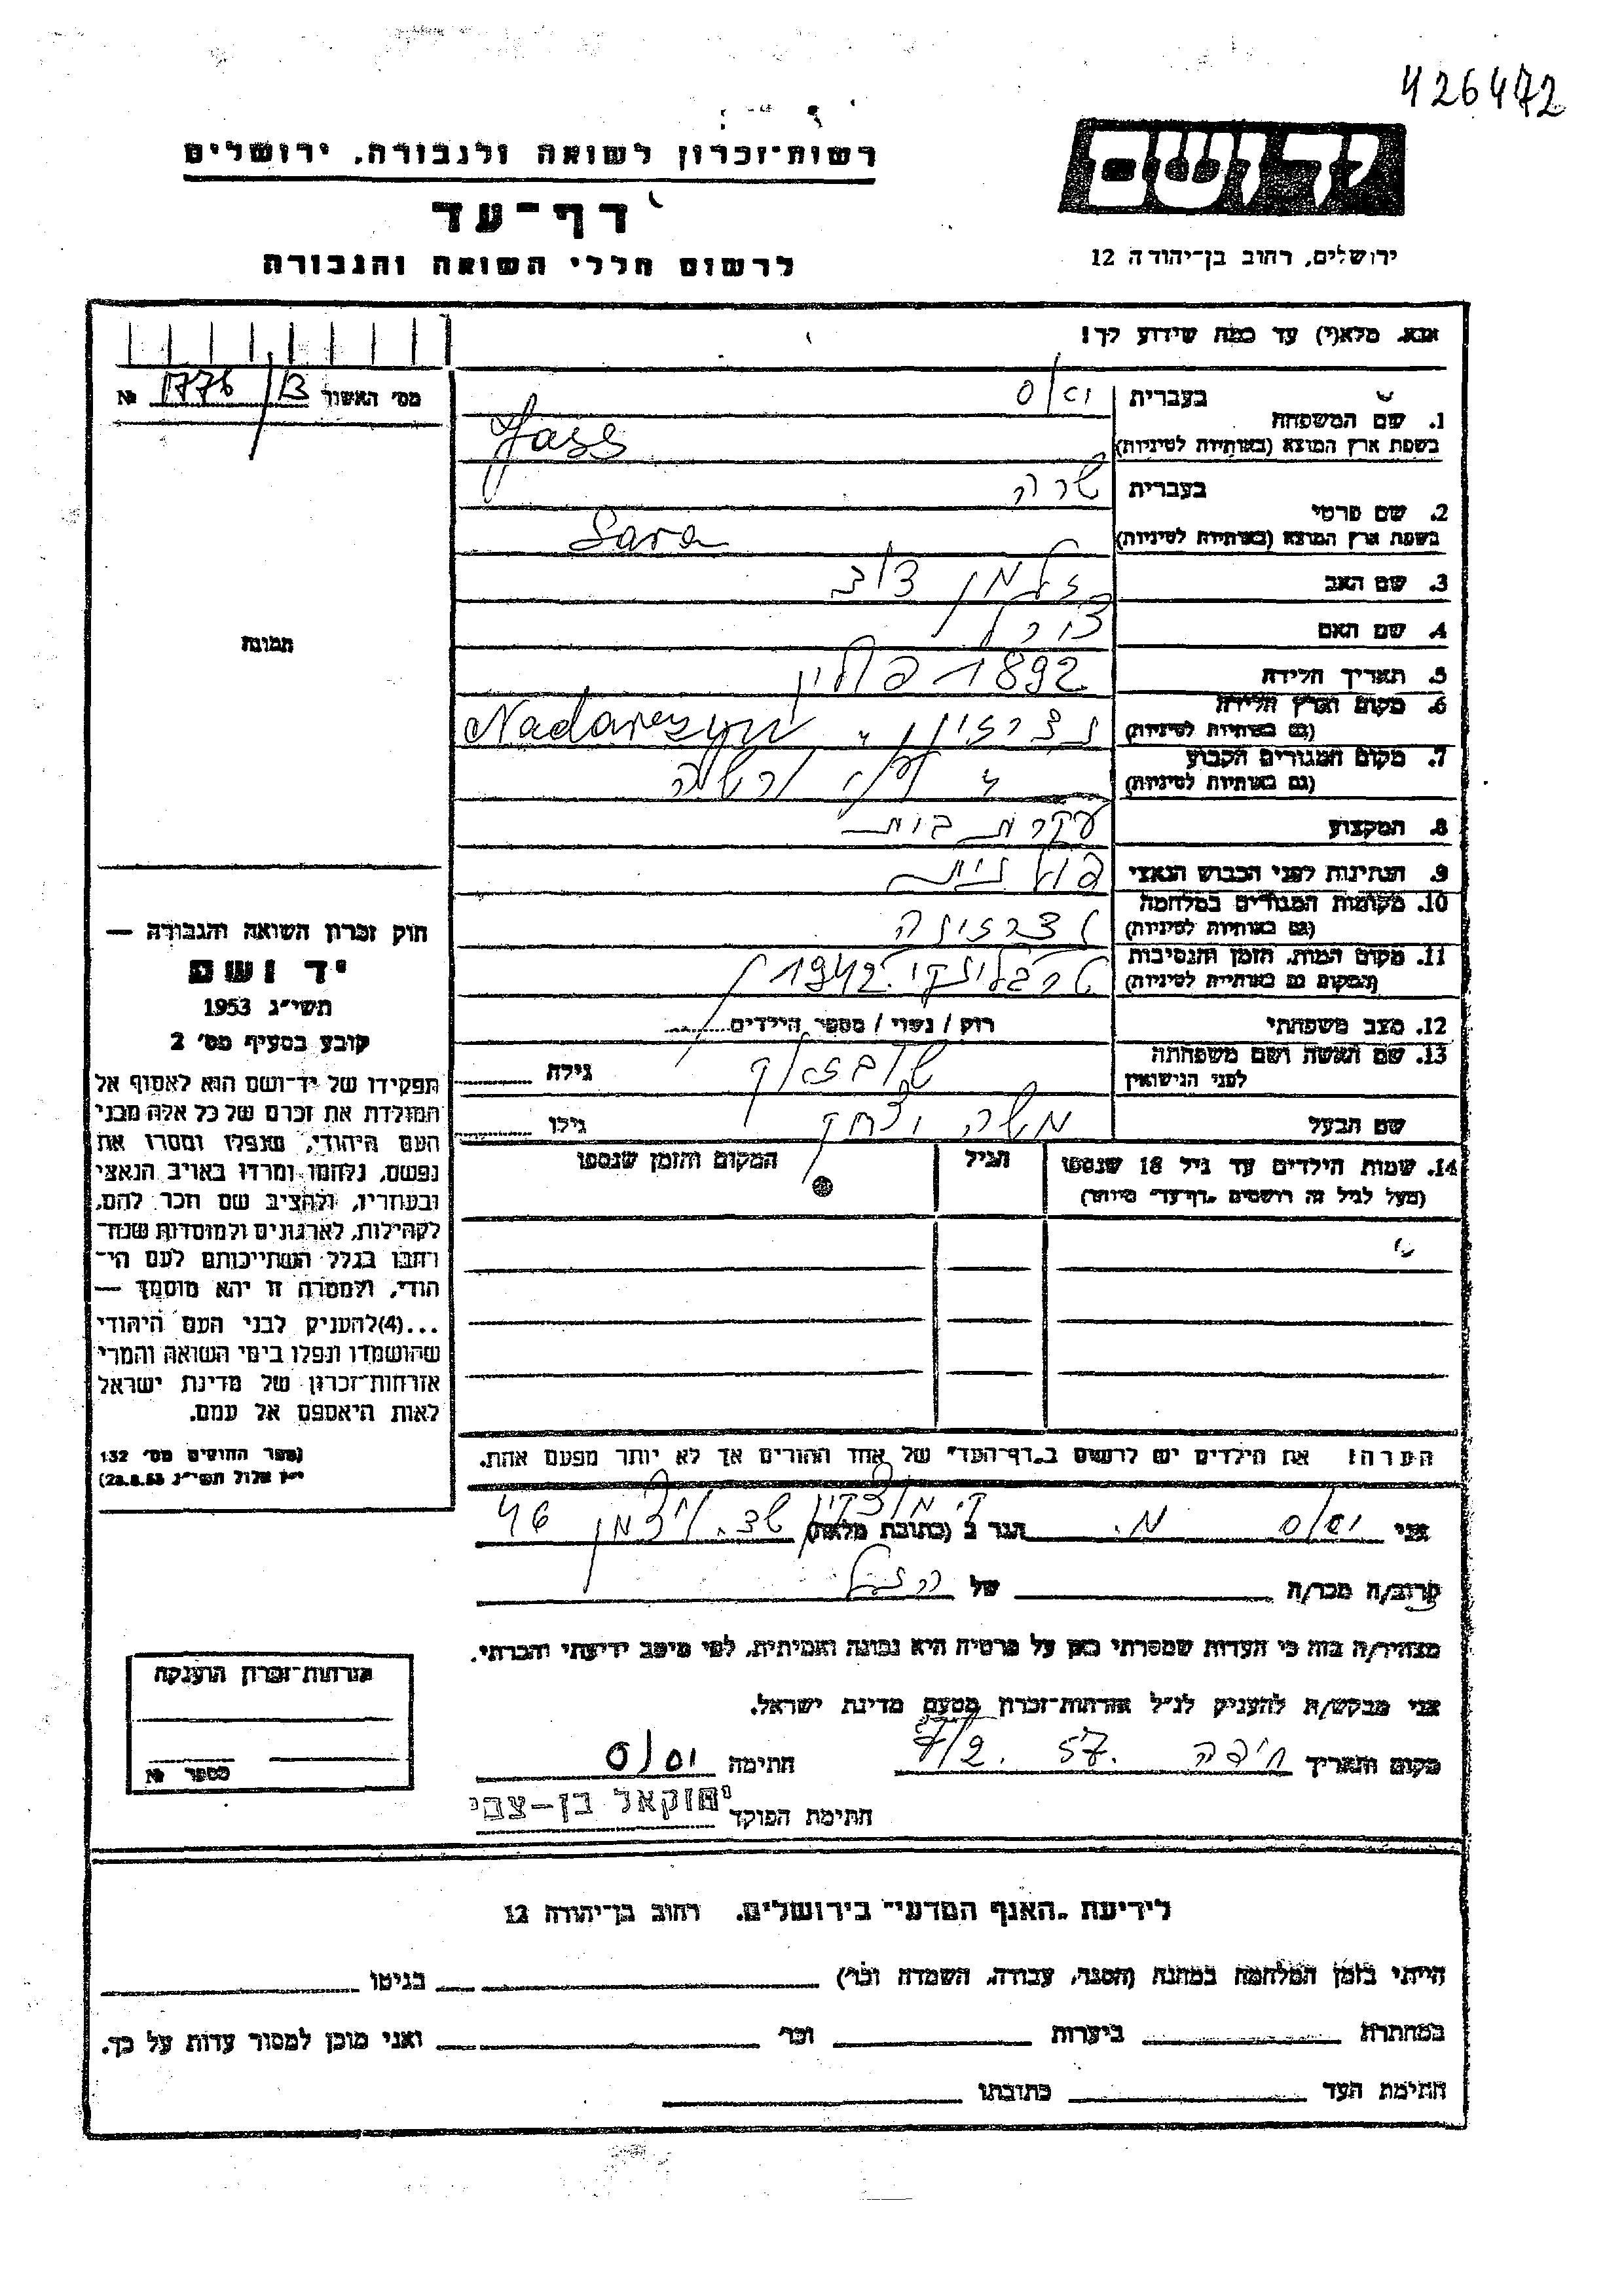 426472
רשות־זכרון לשואה ולגבורה, ירושלים
דף־עד
לרשום חללי השואה והגבורה
יד ושם
ירושלים, רחוב בן־יהודה 12
אנא, מלא(י) עד כמה שידוע לך!
מס' האשור 1776/13 №
תמונה
1. שם המשפחה
בעברית
בשפת ארץ המוצא (באותיות לטיניות)
Jass
2. שם פרטי
בעברית שרה
בשפת ארץ המוצא (באותיות לטיניות) Sara
3. שם האב זלמן
4. שם האם
5. תאריך הלידה 1892 פולין
6. מקום וארץ הלידה
(גם באותיות לטיניות) Nadarzyn
7. מקום המגורים הקבוע
(גם באותיות לטיניות) ע"י ורשה
8. המקצוע עקרת בית
9. הנתינות לפני הכבוש הנאצי פולנית
10. מקומות המגורים במלחמה
(גם באותיות לטיניות)
11. מקום המות, הזמן והנסיבות
(המקום גם באותיות לטיניות) טרבלינקי 1942
12. מצב משפחתי רוק / נשוי / מספר הילדים
13. שם האשה ושם משפחתה
לפני הנישואין גילה
שם הבעל משה יצחק גילו
14. שמות הילדים עד גיל 18 שנספו הגיל המקום והזמן שנספו
(מעל לגיל זה רושמים „דף־עד" מיוחד)
חוק זכרון השואה והגבורה —
יד ושם
תשי"ג 1953
קובע בסעיף מס' 2
תפקידו של יד־ושם הוא לאסוף אל
המולדת את זכרם של כל אלה מבני
העם היהודי, שנפלו ומסרו את
נפשם, נלחמו ומרדו באויב הנאצי
ובעוזריו, ולהציב שם וזכר להם,
לקהילות, לארגונים ולמוסדות שנח־
רבו בגלל השתייכותם לעם הי־
הודי, ולמטרה זו יהא מוסמך —
...(4)להעניק לבני העם היהודי
שהושמדו ונפלו בימי השואה והמרי
אזרחות־זכרון של מדינת ישראל
לאות היאספם אל עמם.
(ספר החוקים מס' 132
י"ז אלול תשי"ג 28.8.53)
הערה: את הילדים יש לרשום ב„דף־העד" של אחד ההורים אך לא יותר מפעם אחת.
אני מ. הגר ב (כתובת מלאה) ק. מוצקין 46
קרוב/ה מכר/ה של
מצהיר/ה בזה כי העדות שמסרתי כאן על פרטיה היא נכונה ואמיתית, לפי מיטב ידיעתי והכרתי.
אני מבקש/ת להעניק לנ"ל אזרחות־זכרון מטעם מדינת ישראל.
מקום ותאריך חיפה 57. חתימה
חתימת הפוקד יחזקאל בן-צבי
אזרחות־זכרון הוענקה
מספר №
לידיעת „האגף המדעי" בירושלים, רחוב בן־יהודה 12
הייתי בזמן המלחמה במחנה (הסגר, עבודה, השמדה וכו') בגיטו
במחתרת ביערות וכו' ואני מוכן למסור עדות על כך.
חתימת העד כתובתו